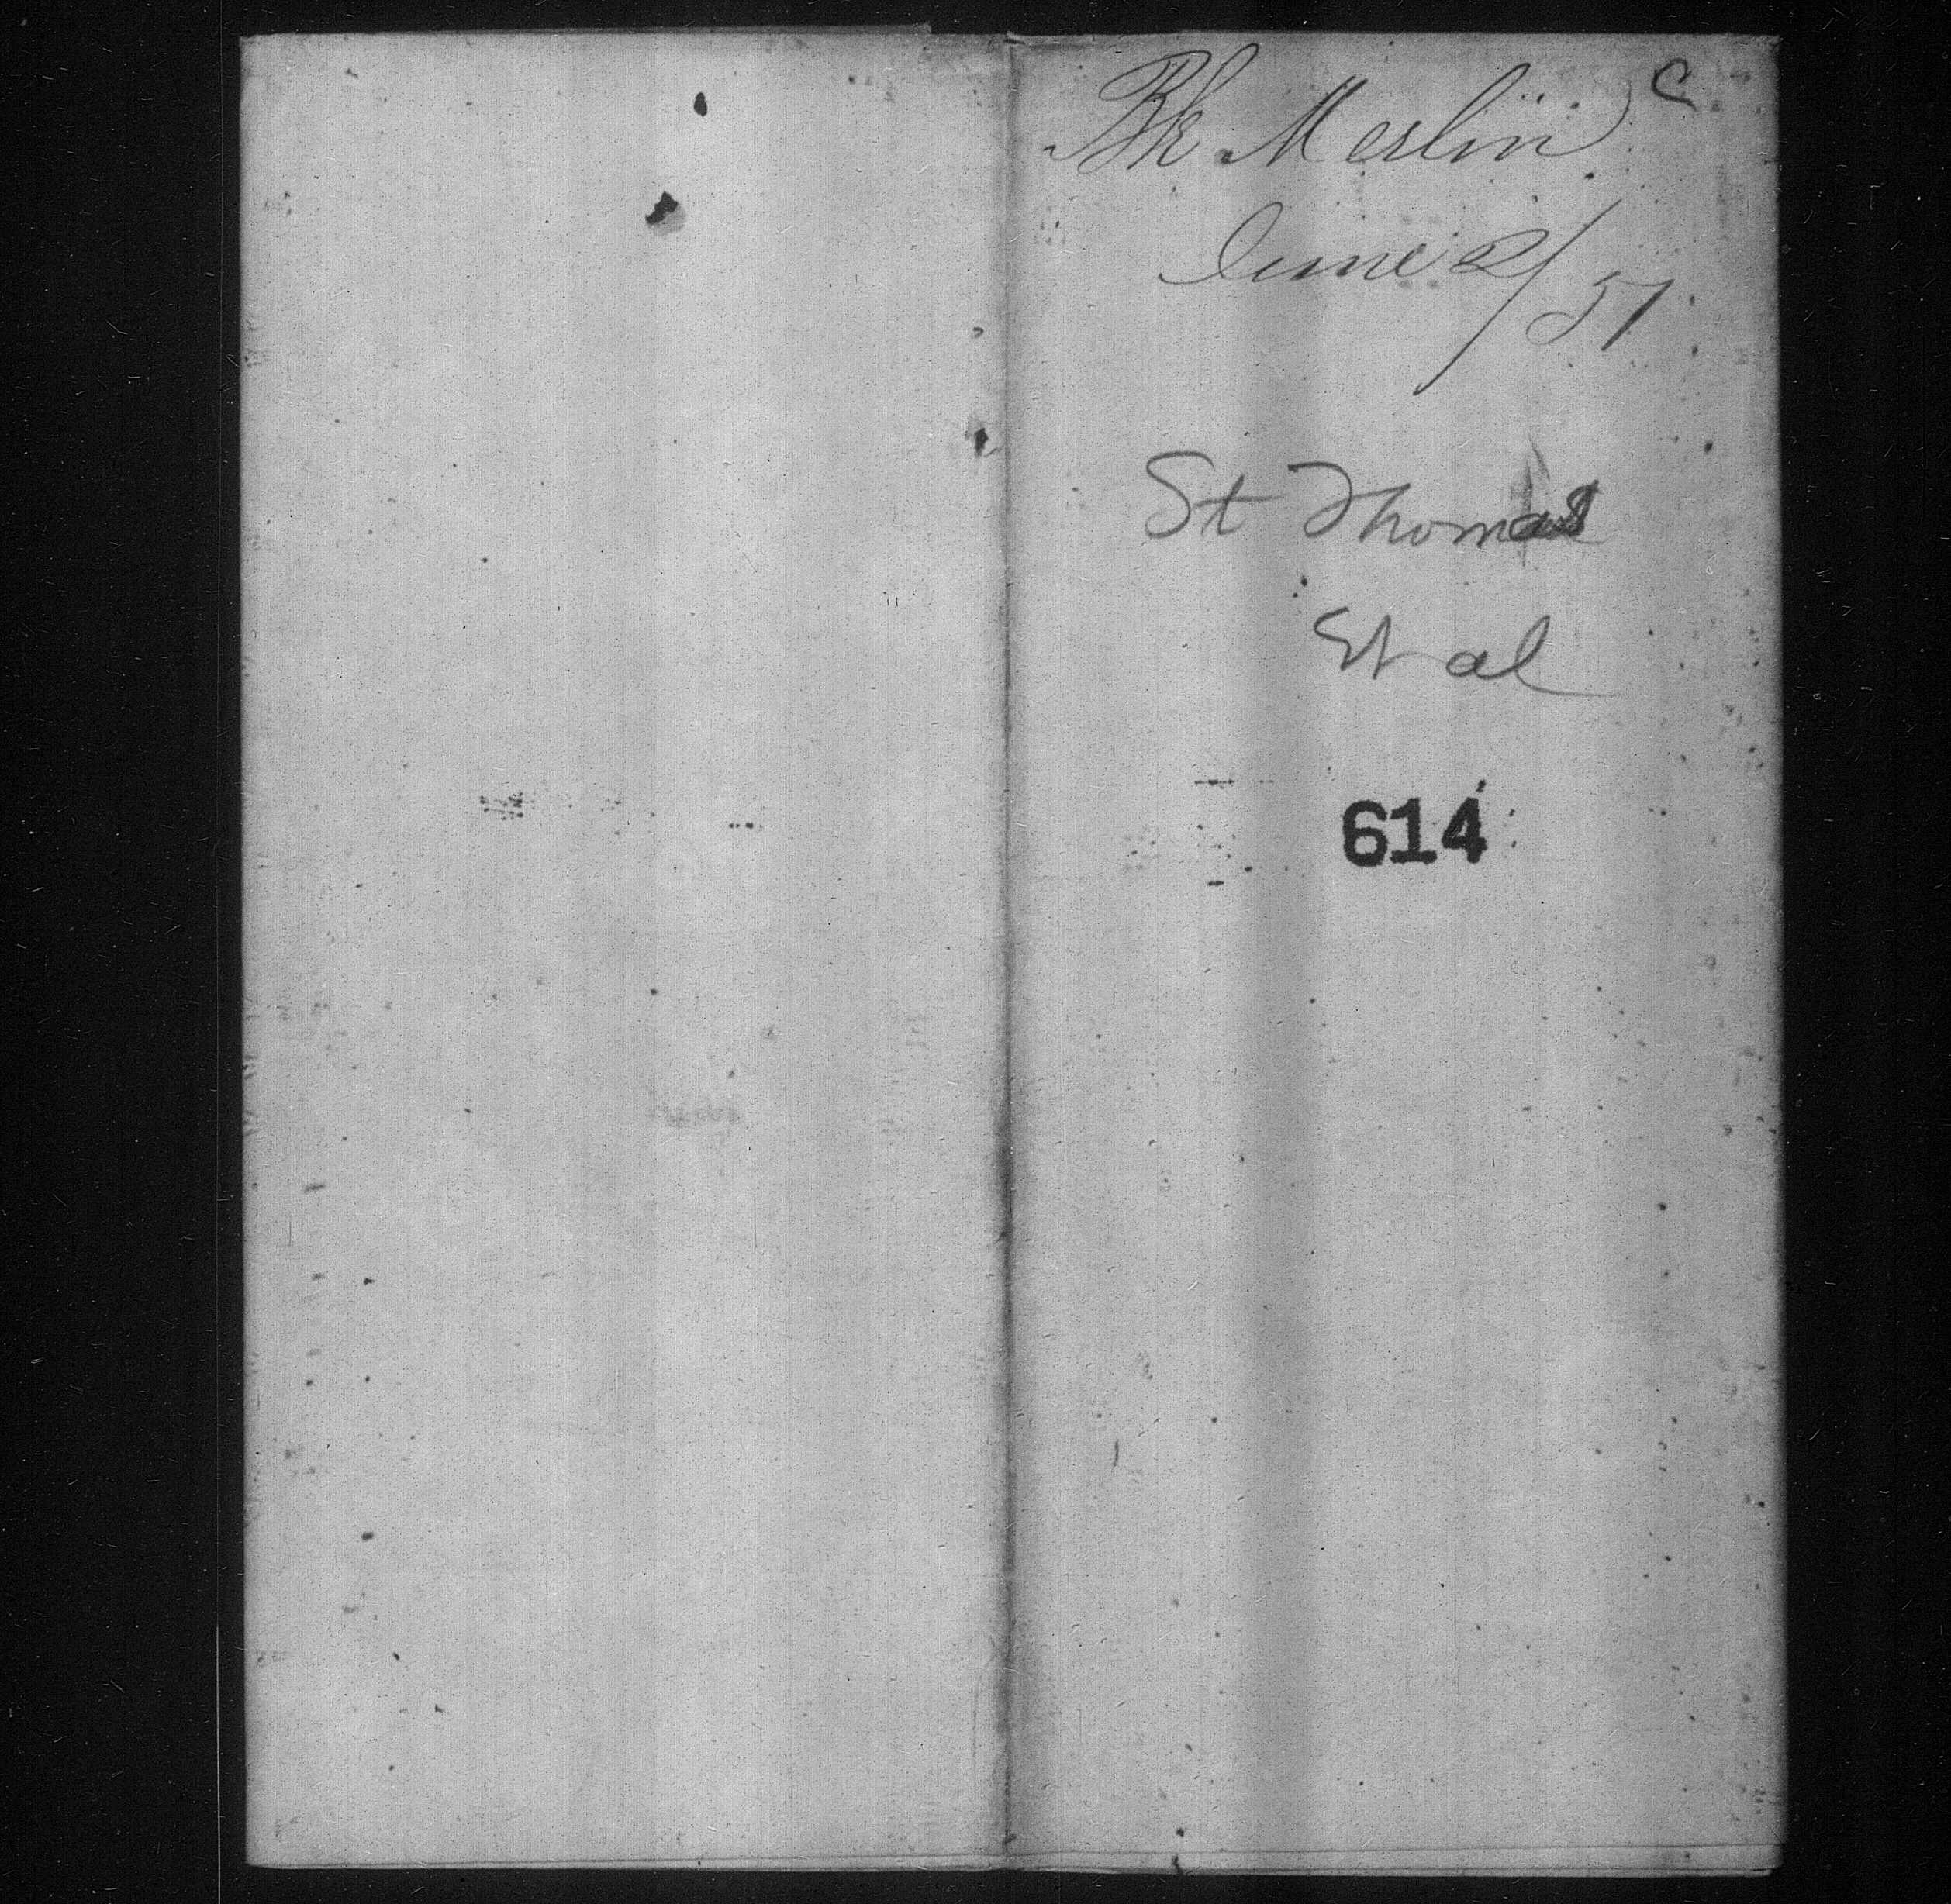 C
Bk Merlin
June 2/51
St Thomas
Et al
614